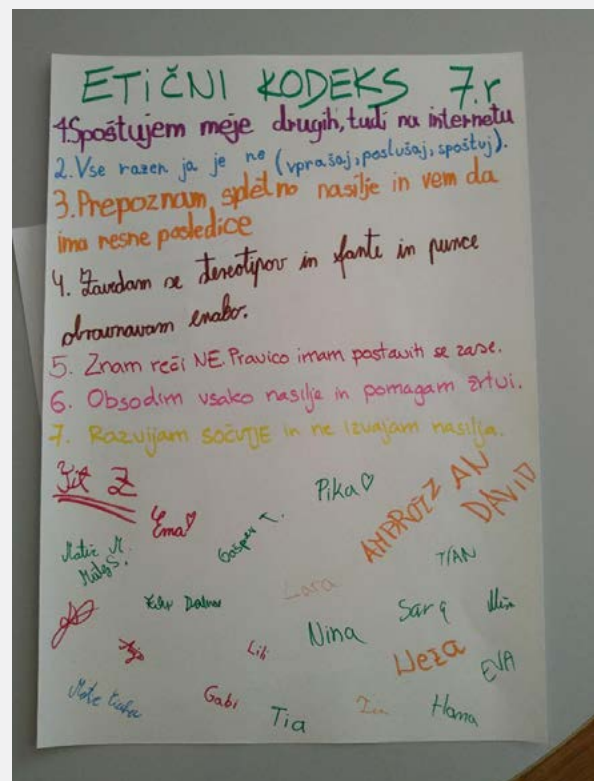 ETIČNI KODEKS 7.r
1. Spoštujem meje drugih, tudi na internetu
2. Vse razen ja je ne (vprašaj, poslušaj, spoštuj).
3. Prepoznam spletno nasilje in vem da
ima resne posledice
4. Zavedam se stereotipov in fante in punce
obravnavam enako.
5. Znam reči NE. Pravico imam postaviti se zase.
6. Obsodim vsako nasilje in pomagam žrtvi.
7. Razvijam sočutje in ne izvajam nasilja.
Pika
Žit Z
Ema
Gašper T.
AMBROŽ AN
DAVID
Matic M.
Matej S.
TIAN
Lara
Sara
Nina
Anja
Lili
Neža
EVA
Gabi
Tia
Hana